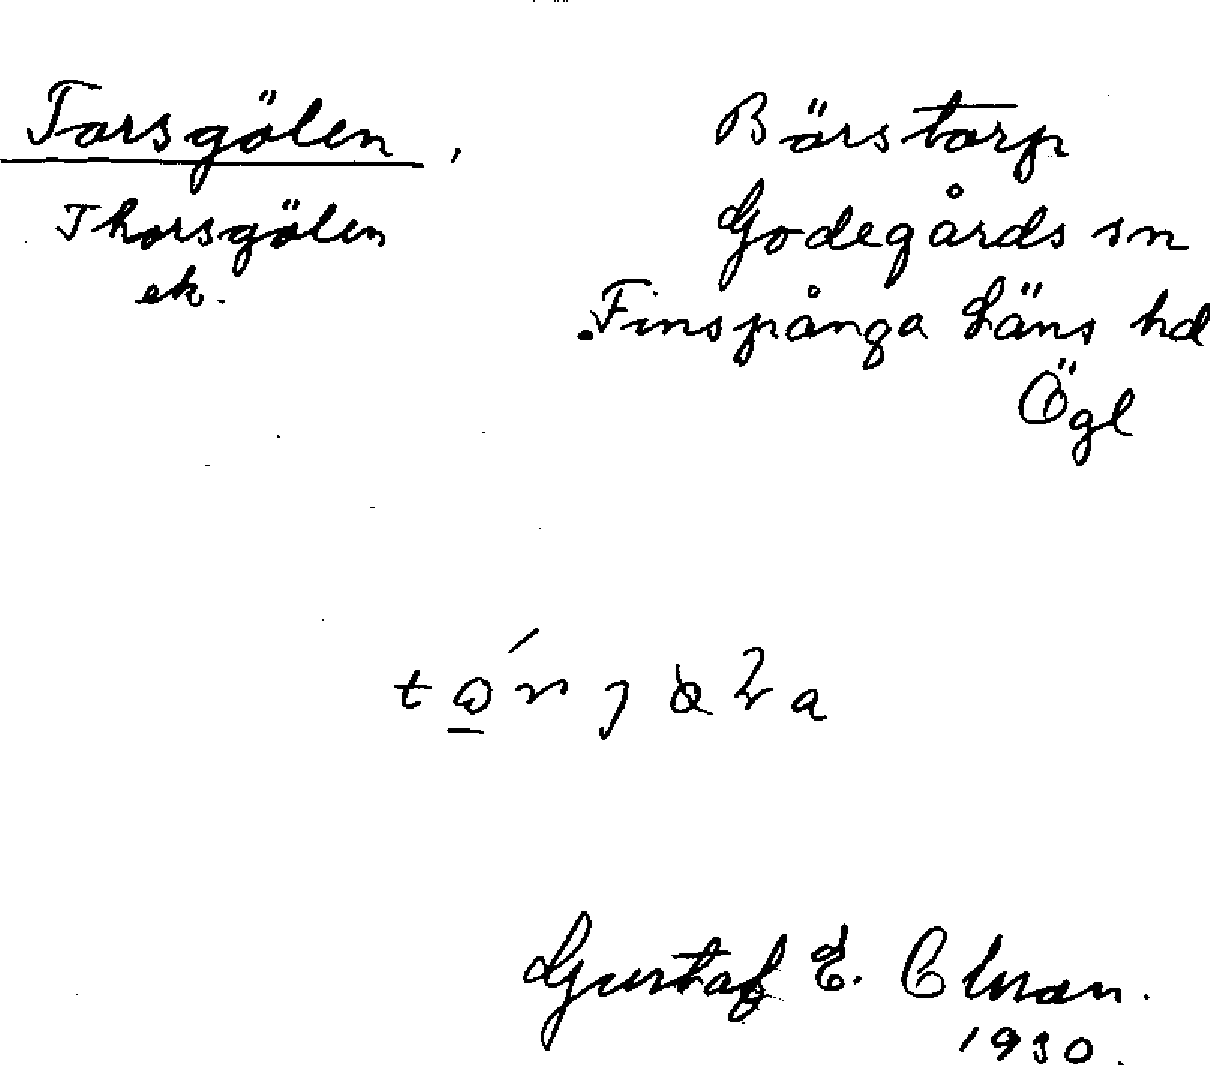 Torsgölen,
Thorsgölen
ek.
Börstorp
Godegårds sn
Finspånga Läns hd
Ögl
Gustaf E.
1930.